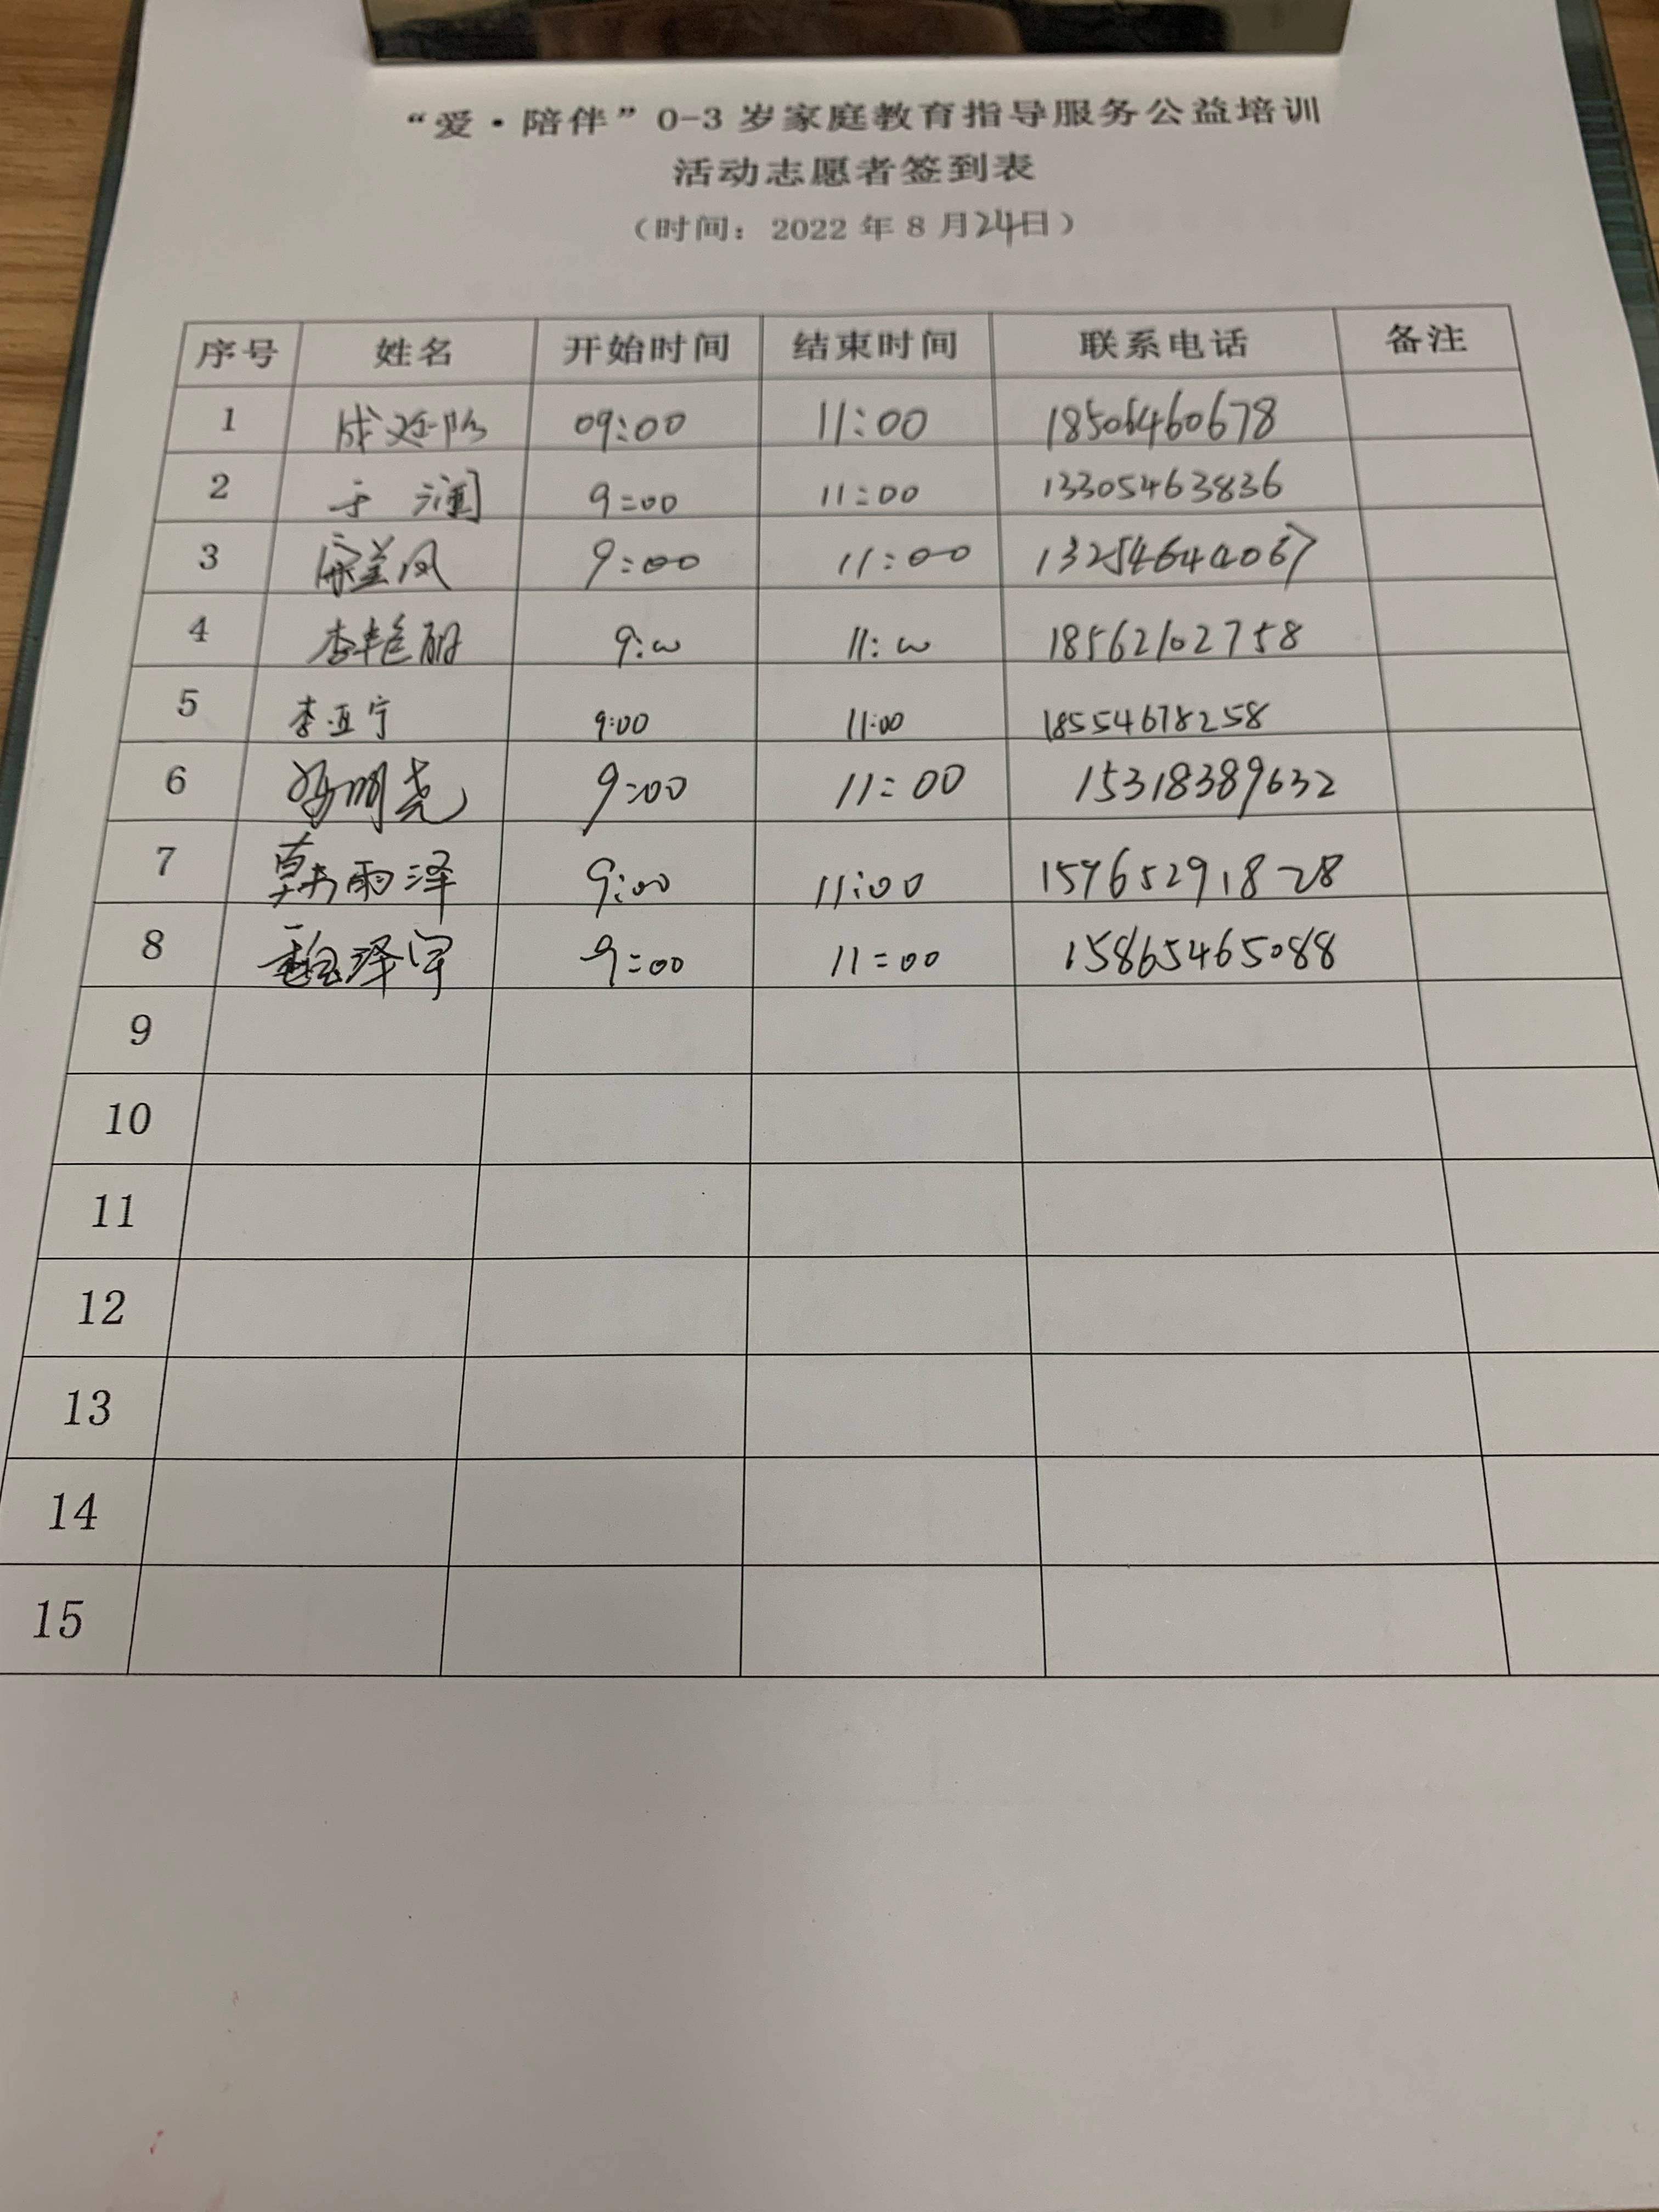 “爱·陪伴”0-3 岁家庭教育指导服务公益培训
活动志愿者签到表
（时间：2022 年 8 月24日）
序号 姓名 开始时间 结束时间 联系电话 备注
1 09:00 11:00 18505460678
2 于 润 9:00 11:00 13305463836
3 9:00 11:00 13254644067
4 李艳丽 9:00 11:00 18562102758
5 李亚宁 9:00 11:00 18554678258
6 冯明尧 9:00 11:00 15318389632
7 韩雨泽 9:00 11:00
8 魏泽宇 9:00 11:00 15865465088
9
10
11
12
13
14
15